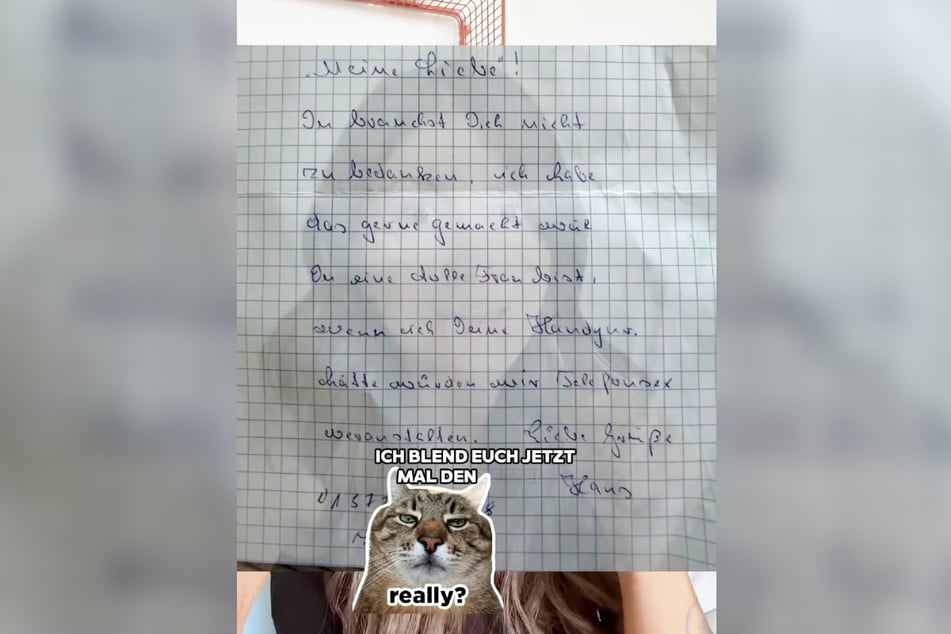 "Meine Liebe"!
Du brauchst Dich nicht
zu bedanken, ich habe
das gerne gemacht weil
Du eine dolle Frau bist,
wenn ich Deine Handynr.
hätte würden wir Telefonsex
veranstalten. Liebe Grüße
Hans
ICH BLEND EUCH JETZT
MAL DEN
really?